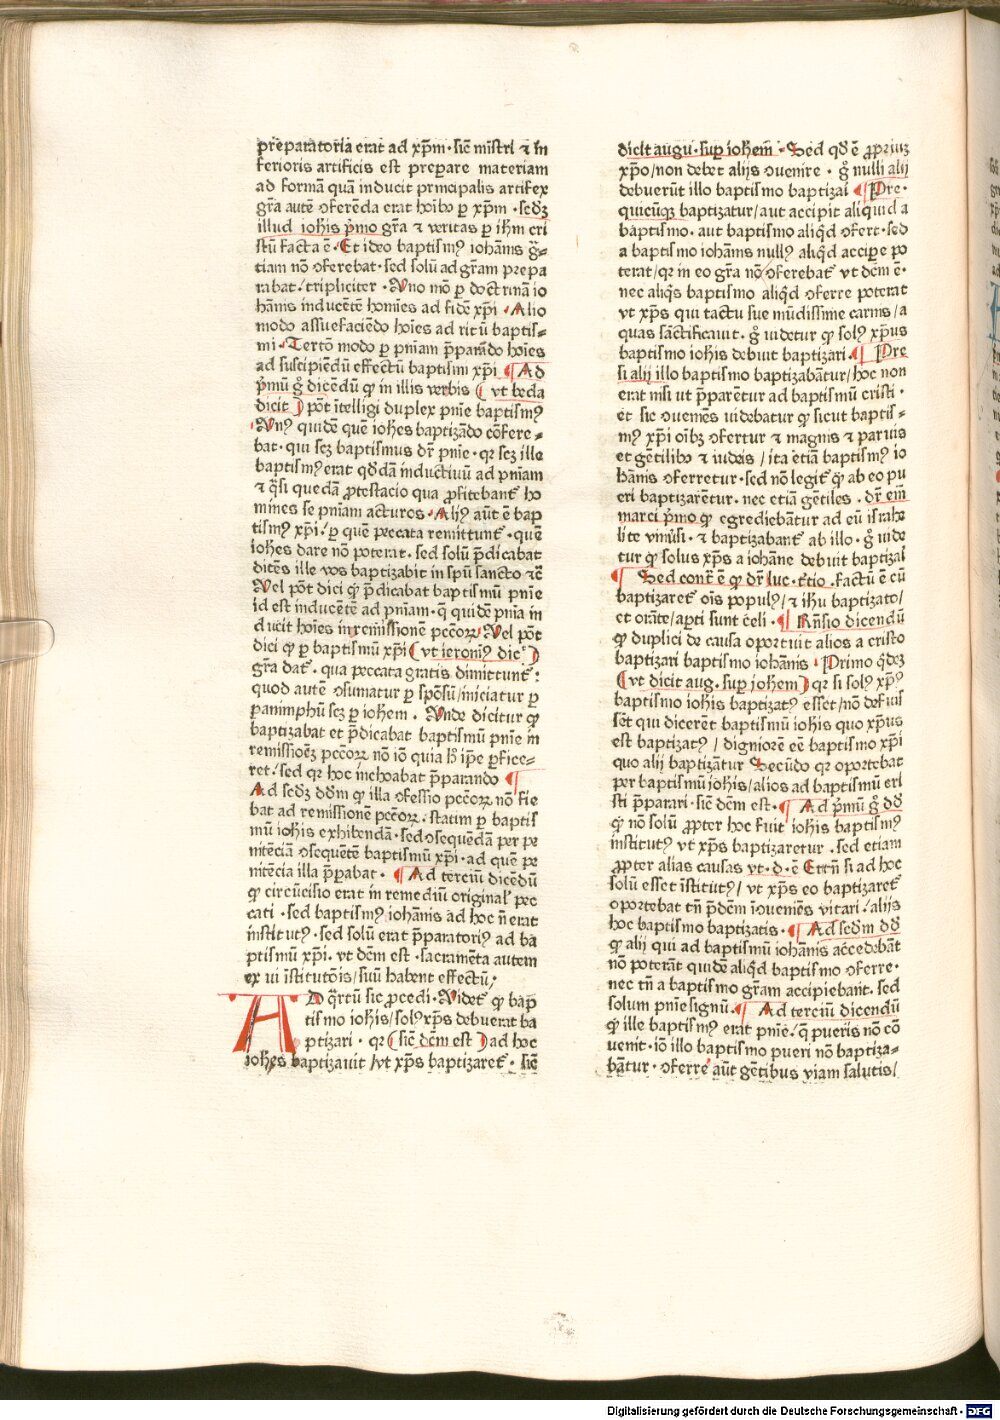 preparatoria erat ad xp̄m · sic̄ mīstri ⁊ in
ferioris artificis est prepare materiam
ad formā quā inducit principalis artifex
gr̄a autē ↄferēda erat hoībꝰ ꝑ xp̄m · sed̄ꝫ
illud ioh̄is p̄mo gr̄a ⁊ veritas ꝑ ih̄m cri
stū facta ē · Et ideo baptismꝰ iohānis gr̄
tiam nō ↄferebat · sed solū ad gr̄am prepa
rabat / tripliciter · Uno mō ꝑ doctrinā io
hānis inducētē homīes ad fidē xp̄i · Alio
modo assuefaciēdo hoīes ad ritū baptis⸗
mi · Tertō modo ꝑ pn̄iam p̄parādo hoīes
ad suscipiēdū effectū baptismi xp̄i ¶ Ad
p̄mū g̊ dicēdū ꝙ in illis verbis ( vt beda
dicit ) pōt ītelligi duplex pn̄ie baptismꝰ
Unꝰ quidē quē ioh̄es baptizādo cōfere⸗
bat · qui scꝫ baptismus dr̄ pn̄ie · qꝛ scꝫ ille
baptismꝰ erat qd̄dā inductiuū ad pn̄iam
⁊ q̄si quedā ꝓtestacio qua ꝓfitebant̄ ho
mines se pn̄iam acturos · Aliꝰ aūt ē bap
tismꝰ xp̄i / ꝑ quē peccata remittunt̄ · quē
ioh̄es dare nō poterat · sed solū p̄dicabat
dicēs ille vos baptizabit in sp̄u sancto ⁊c̄
Uel pōt dici ꝙ p̄dicabat baptismū pn̄ie
id est inducētē ad pn̄iam · q̄ quidē pn̄ia in
ducit hoīes in remissionē pcc̄oꝝ · Uel pōt
dici ꝙ ꝑ baptismū xp̄i ( vt ieronimꝰ dic̄ )
gr̄a dat̄ · qua peccata gratis dimittunt̄ :
quod autē ↄsumatur ꝑ spōsū / iniciatur ꝑ
ꝑanimphū scꝫ ꝑ ioh̄em . Unde dicitur ꝙ
baptizabat et p̄dicabat baptismū pn̄ie in
remissiōeꝫ pcc̄oꝝ nō iō quia h̄ īpe ꝑfice⸗
ret / sed qꝛ hoc inchoabat p̄parando ¶
Ad sed̄ꝫ dd̄m ꝙ illa ↄfessio pcc̄oꝝ nō fie
bat ad remissionē pcc̄oꝝ statim ꝑ baptis
mū ioh̄is exhibendā · sed ↄsequēdā per pe
nitēciā ↄsequētē baptismū xp̄i · ad quē pe
nitēcia illa p̄ꝑabat · ¶ Ad terciū dicēdū
ꝙ circūcisio erat in remediū original̄ pec
cati · sed baptismꝰ iohānis ad hoc n̄ erat
institutꝰ · sed solū erat p̄paratoriꝰ ad ba
ptismū xp̄i · vt dc̄m est · sacramēta autem
ex vi īstitutōis / suū habent effectū /
AD q̄rtū sic ꝓcedi · Uidet̄ ꝙ bap
tismo ioh̄is / solꝰ xp̄s debuerat ba
ptizari · qꝛ ( sic̄ dc̄m est ) ad hoc
ioh̄es baptizauit / vt xp̄s baptizaret̄ · sic̄
dicit augu · suꝑ ioh̄em · Sed qd̄ ē ꝓpriuꝫ
xp̄o / non debet alijs ↄuenire · g̊ nulli alij
debuerūt illo baptismo baptizai ¶ Pre ·
quicūqꝫ baptizatur / aut accipit aliquid a
baptismo · aut baptismo aliqd̄ ↄfert · sed
a baptismo iohānis nullꝰ aliqd̄ acciꝑe po
terat / qꝛ in eo gr̄a nō ↄferebat̄ vt dc̄m ē ·
nec aliq̄s baptismo aliqd̄ ↄferre poterat
vt xp̄s qui tactu sue mūdissime carnis / a
quas sāctificauit · g̊ videtur ꝙ solꝰ xp̄us
baptismo ioh̄is debuit baptizari · ¶ Pre
si alij illo baptismo baptizabātur / hoc non
erat nisi ut p̄parētur ad baptismū cristi ·
et sic ↄueniēs uidebatur ꝙ sicut baptis⸗
mꝰ xp̄i oībꝫ ↄfertur ⁊ magnis ⁊ paruis
et gētilibꝰ ⁊ iudeis / ita etiā baptismꝰ io
hānis ↄferretur · sed nō legit̄ ꝙ ab eo pu
eri baptizarētur · nec etiā gētiles · dr̄ em̄
marci p̄mo ꝙ egrediebātur ad eū israhe
lite vniūsi · ⁊ baptizabant̄ ab illo · g̊ uide
tur ꝙ solus xp̄s a iohāne debuit baptizai
¶ Sed contr̄ ē ꝙ dr̄ luc · t̄tio · factū ē cū
baptizaret̄ oīs populꝰ / ⁊ ih̄u baptizato /
et orāte / aꝑti sunt celi · ¶ Rn̄sio dicendū
ꝙ duplici de causa oportuit alios a cristo
baptizari baptismo iohānis · Primo qd̄eꝫ
( vt dicit aug · suꝑ ioh̄em ) qꝛ si solꝰ xp̄ꝰ
baptismo ioh̄is baptizatꝰ esset / nō defuis
sēt qui dicerēt baptismū ioh̄is quo xp̄us
est baptizatꝰ / digniorē eē baptismo xp̄i
quo alij baptizātur Secūdo qꝛ oportebat
per baptismū ioh̄is / alios ad baptismū cri
sti p̄parari · sic̄ dc̄m est · ¶ Ad p̄mū g̊ dd̄
ꝙ nō solū ꝓpter hoc fuit ioh̄is baptismꝰ
institutꝰ vt xp̄s baptizaretur · sed etiam
ꝓpter alias causas vt · d · ē Et tn̄ si ad hoc
solū esset īstitutꝰ / vt xp̄s eo baptizaret̄
oportebat tn̄ p̄dc̄m īↄueniēs vitari / alijs
hoc baptismo baptizatis · ¶ Ad sed̄m dd̄
ꝙ alij qui ad baptismū iohānis accedebāt
nō poterāt quidē aliqd̄ baptismo ↄferre ·
nec tn̄ a baptismo gr̄am accipiebant · sed
solum pn̄ie signū · ¶ Ad terciū dicendū
ꝙ ille baptismꝰ erat pn̄ie · q̄ pueris nō cō
uenit · iō illo baptismo pueri nō baptiza⸗
bātur · ↄferre aūt gētibus viam salutis /
Digitalisierung gefördert durch die Deutsche Forschungsgemeinschaft - DFG